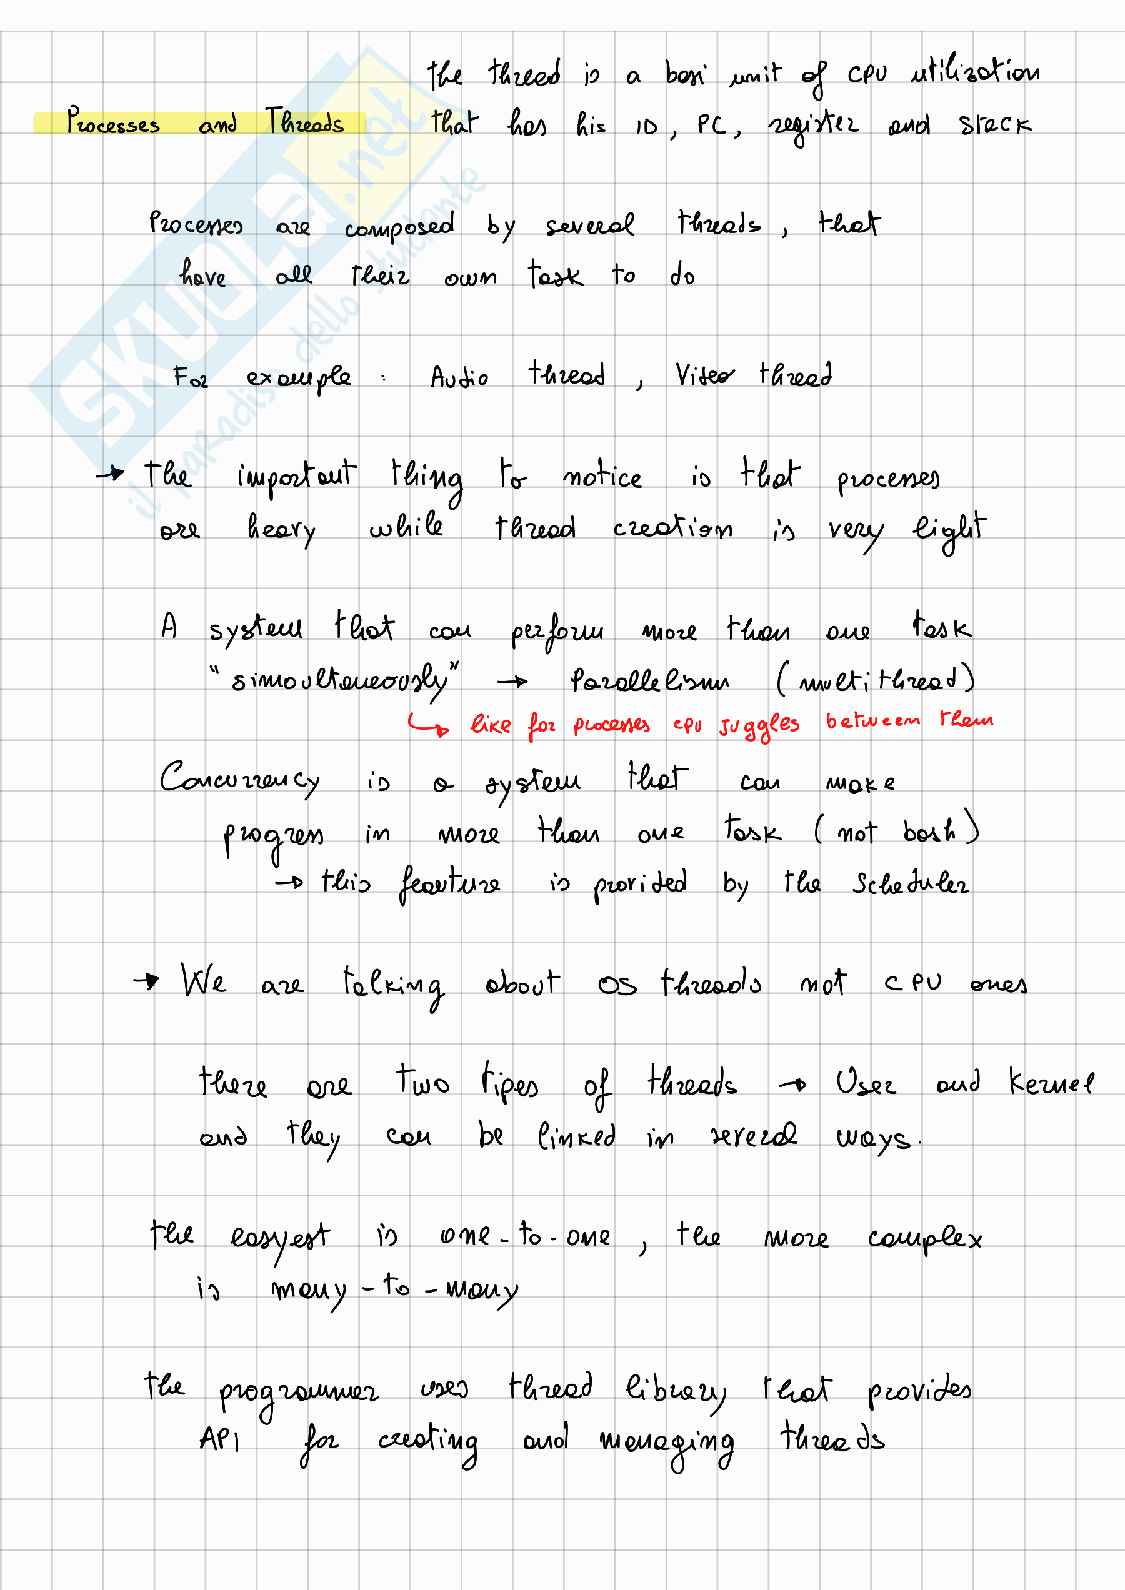 the thread is a basi unit of CPU utilization
Processes and Threads that has his ID, PC, register and stack
Processes are composed by several threads, that
have all their own task to do
For example : Audio thread, Video thread
→ the important thing to notice is that processes
are heavy while thread creation is very light
A system that can perform more than one task
"simoultaneously" → Parallelism (multithread)
↳ like for processes CPU juggles between them
Concurrency is a system that can make
progress in more than one task (not bosh)
→ this feature is provided by the Scheduler
→ We are talking about OS threads not CPU ones
there are two tipes of threads → User and Kernel
and they can be linked in several ways.
the easyest is one-to-one, the more complex
is many-to-many
the programmer uses thread library that provides
API for creating and managing threads
SKUOLA.net
il paradiso dello studente